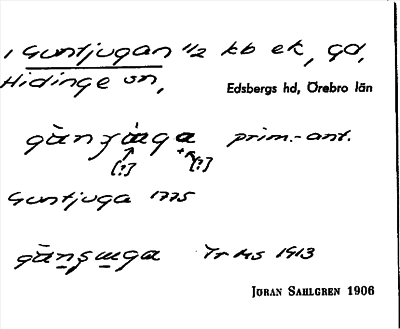 1 Guntjugan 1/2 kb ek, gd,
Hidinge sn,
Edsbergs hd, Örebro län
prim.-ant.
[?] [?]
Guntjuga 1775
Tr Ms 1913
JÖRAN SAHLGREN 1906